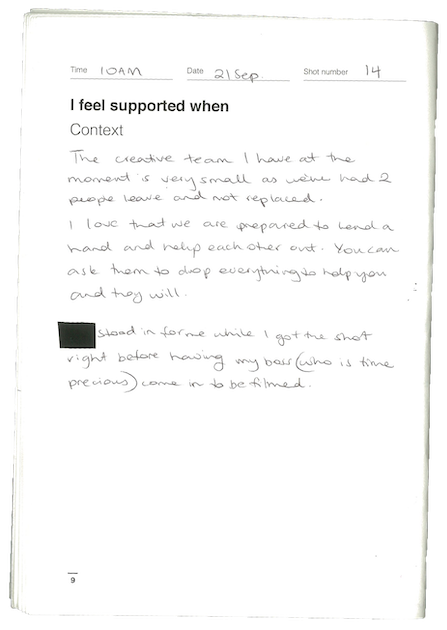 Time 10AM Date 21 Sep Shot number 14
I feel supported when
Context
The creative team I have at the
moment is very small as we've had 2
people leave and not replaced.
I love that we are prepared to lend a
hand and help each other out. You can
ask them to drop everything to help you
and they will.
stood in for me while I got the shot
right before having my boss (who is time
precious) come in to be filmed.
9